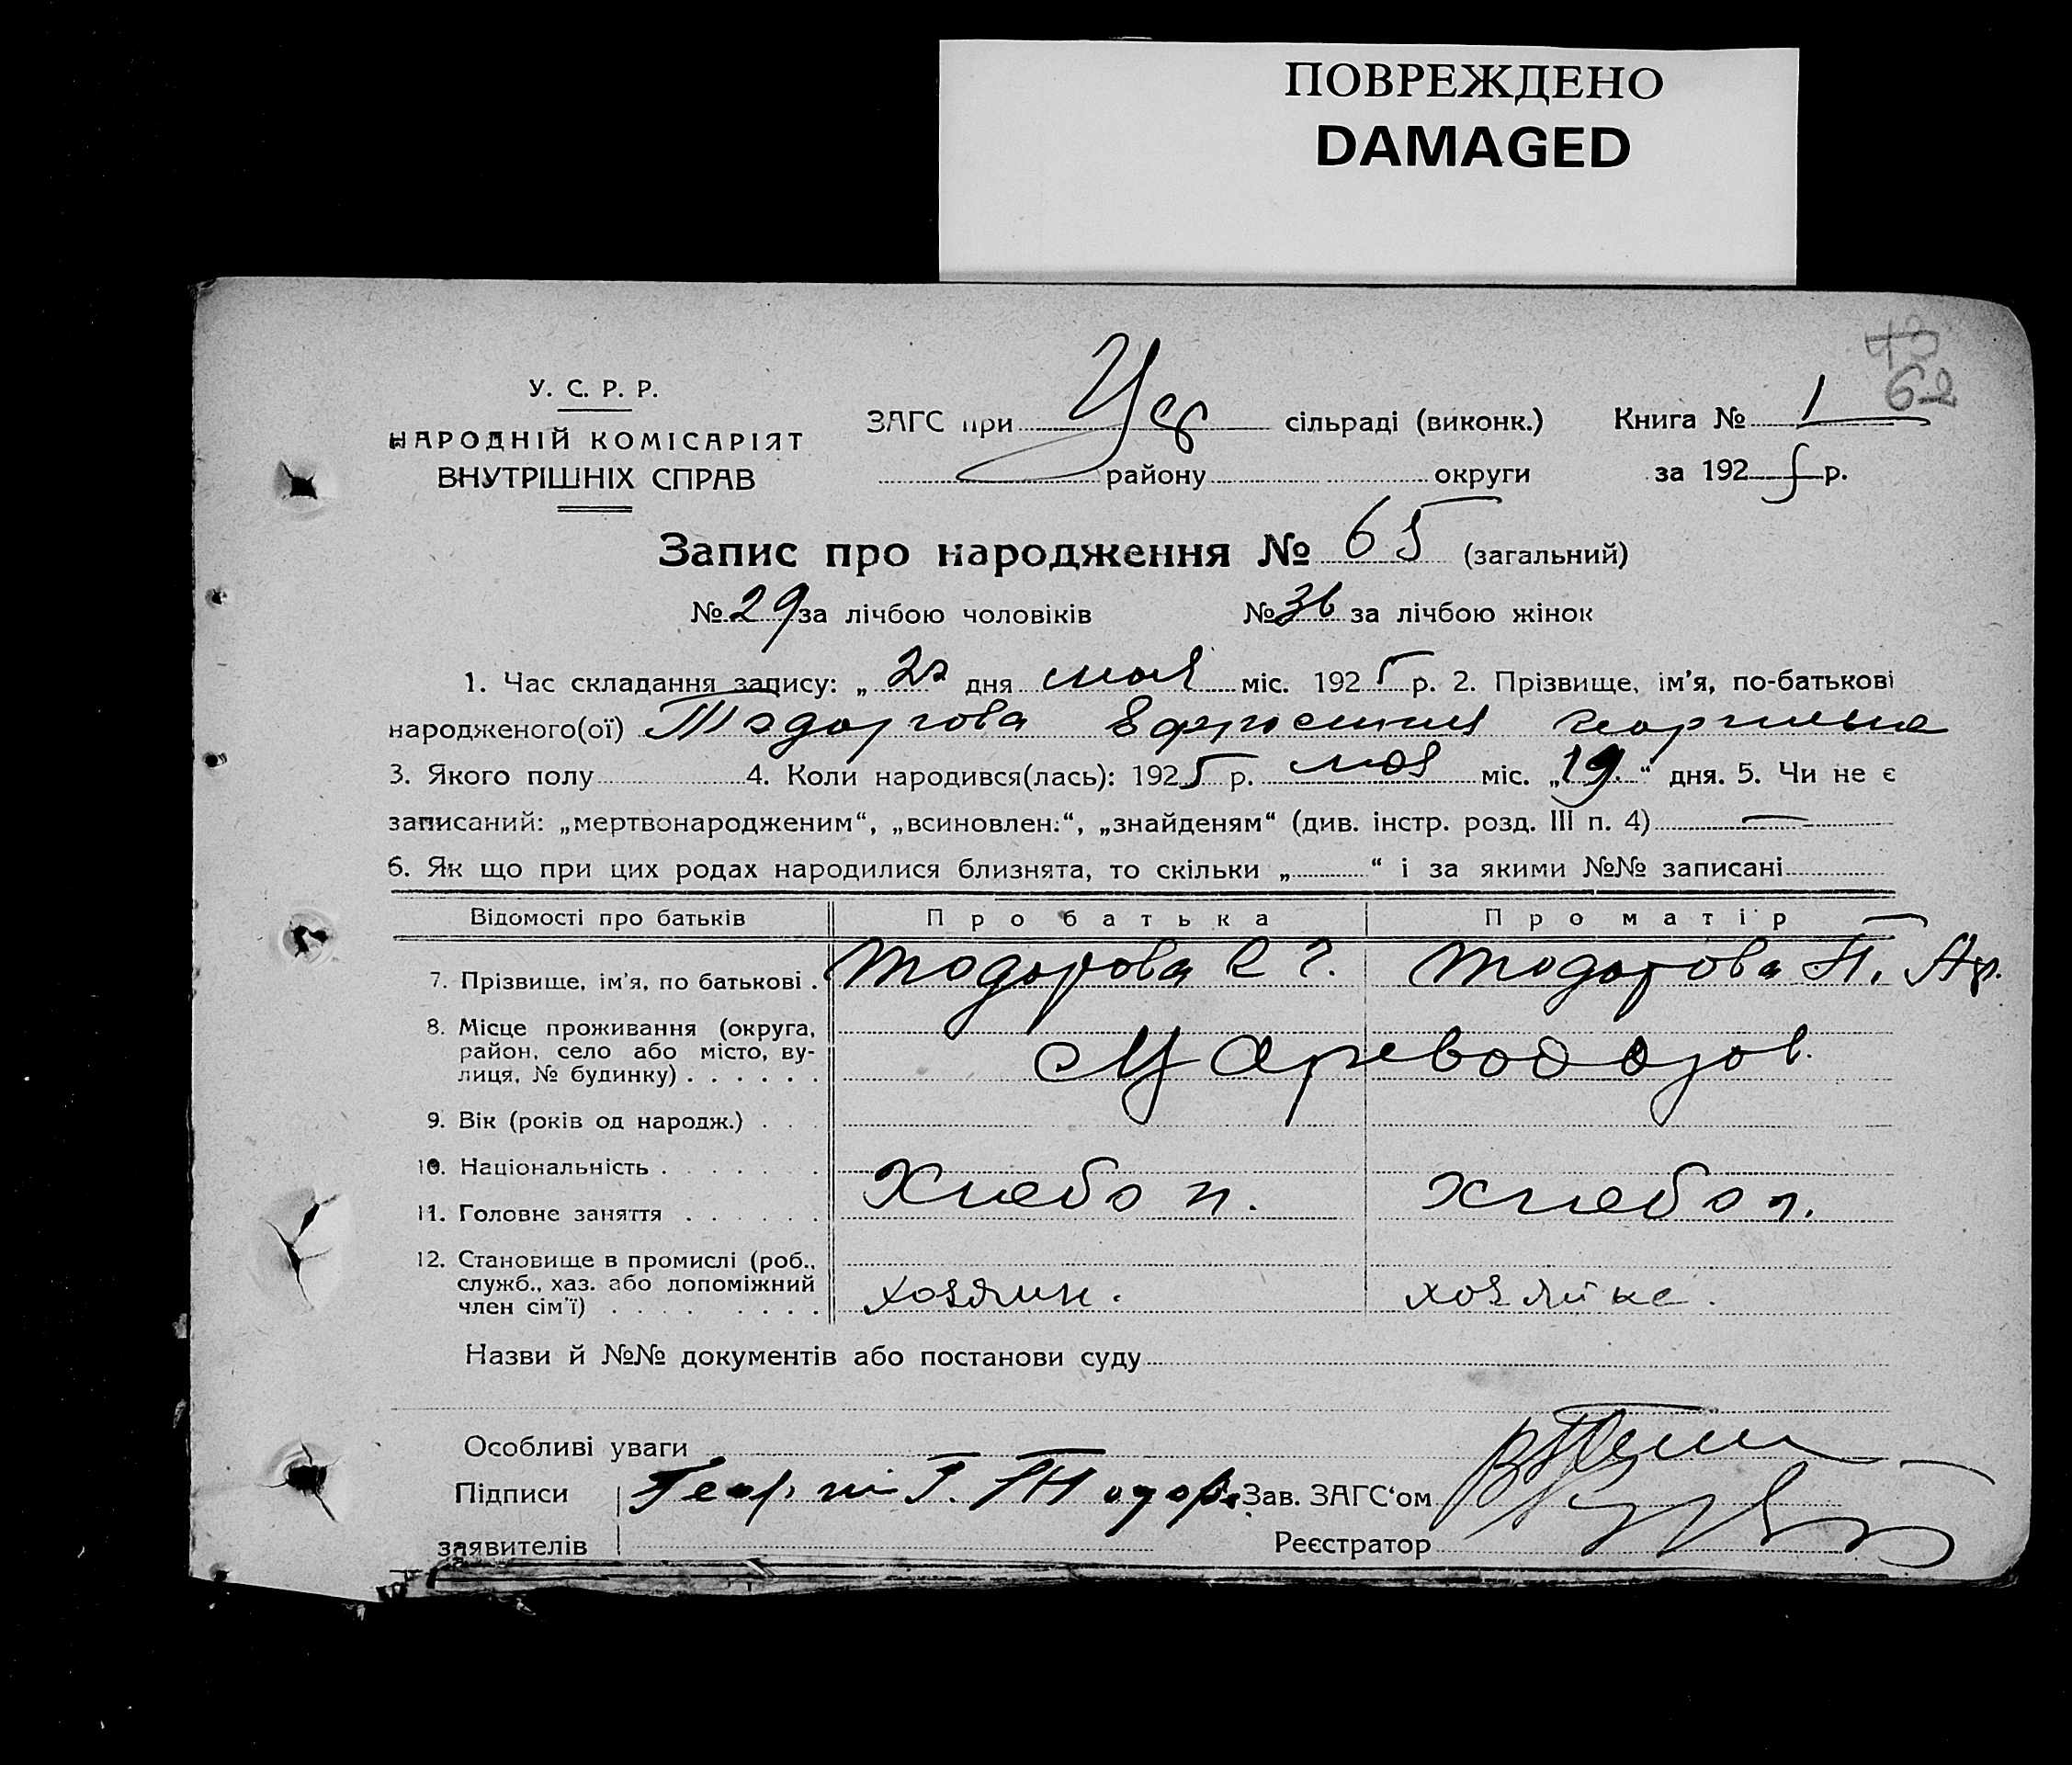 ПОВРЕЖДЕНО
DAMAGED
62
У. С. Р. Р.
НАРОДНІЙ КОМІСАРІЯТ
ВНУТРІШНІХ СПРАВ
ЗАГС при сільраді (виконк.) Книга № 1
району округи за 1925 р.
Запис про народження № 65 (загальний)
№ 29 за лічбою чоловіків № 36 за лічбою жінок
1. Час складання запису: „22 дня мая міс. 1925 р. 2. Прізвище, ім'я, по-батькові
народженого(ої) Тодорова Ефросиния Георгиевна
3. Якого полу 4. Коли народився(лась): 1925 р. мая міс. „19" дня. 5. Чи не є
записаний: „мертвонародженим“, „всиновлен.“, „знайденям“ (див. інстр. розд. III п. 4) —
6. Як що при цих родах народилися близнята, то скільки „ “ і за якими №№ записані
Відомості про батьків Про батька Про матір
7. Прізвище, ім'я, по батькові . Тодорова Г. Тодорова П. Ар.
8. Місце проживання (округа,
район, село або місто, ву-
лиця, № будинку) . . . . . . Цареводаров.
9. Вік (років од народж.) . . .
10. Національність . . . . . . .
11. Головне заняття . . . . . . Хлебоп. Хлебоп.
12. Становище в промислі (роб.,
служб., хаз. або допоміжний
член сім'ї) . . . . . . . . хозяин. хозяйка.
Назви й №№ документів або постанови суду
Особливі уваги
Підписи Георгий Г. Тодор. Зав. ЗАГС'ом
заявителів Реєстратор